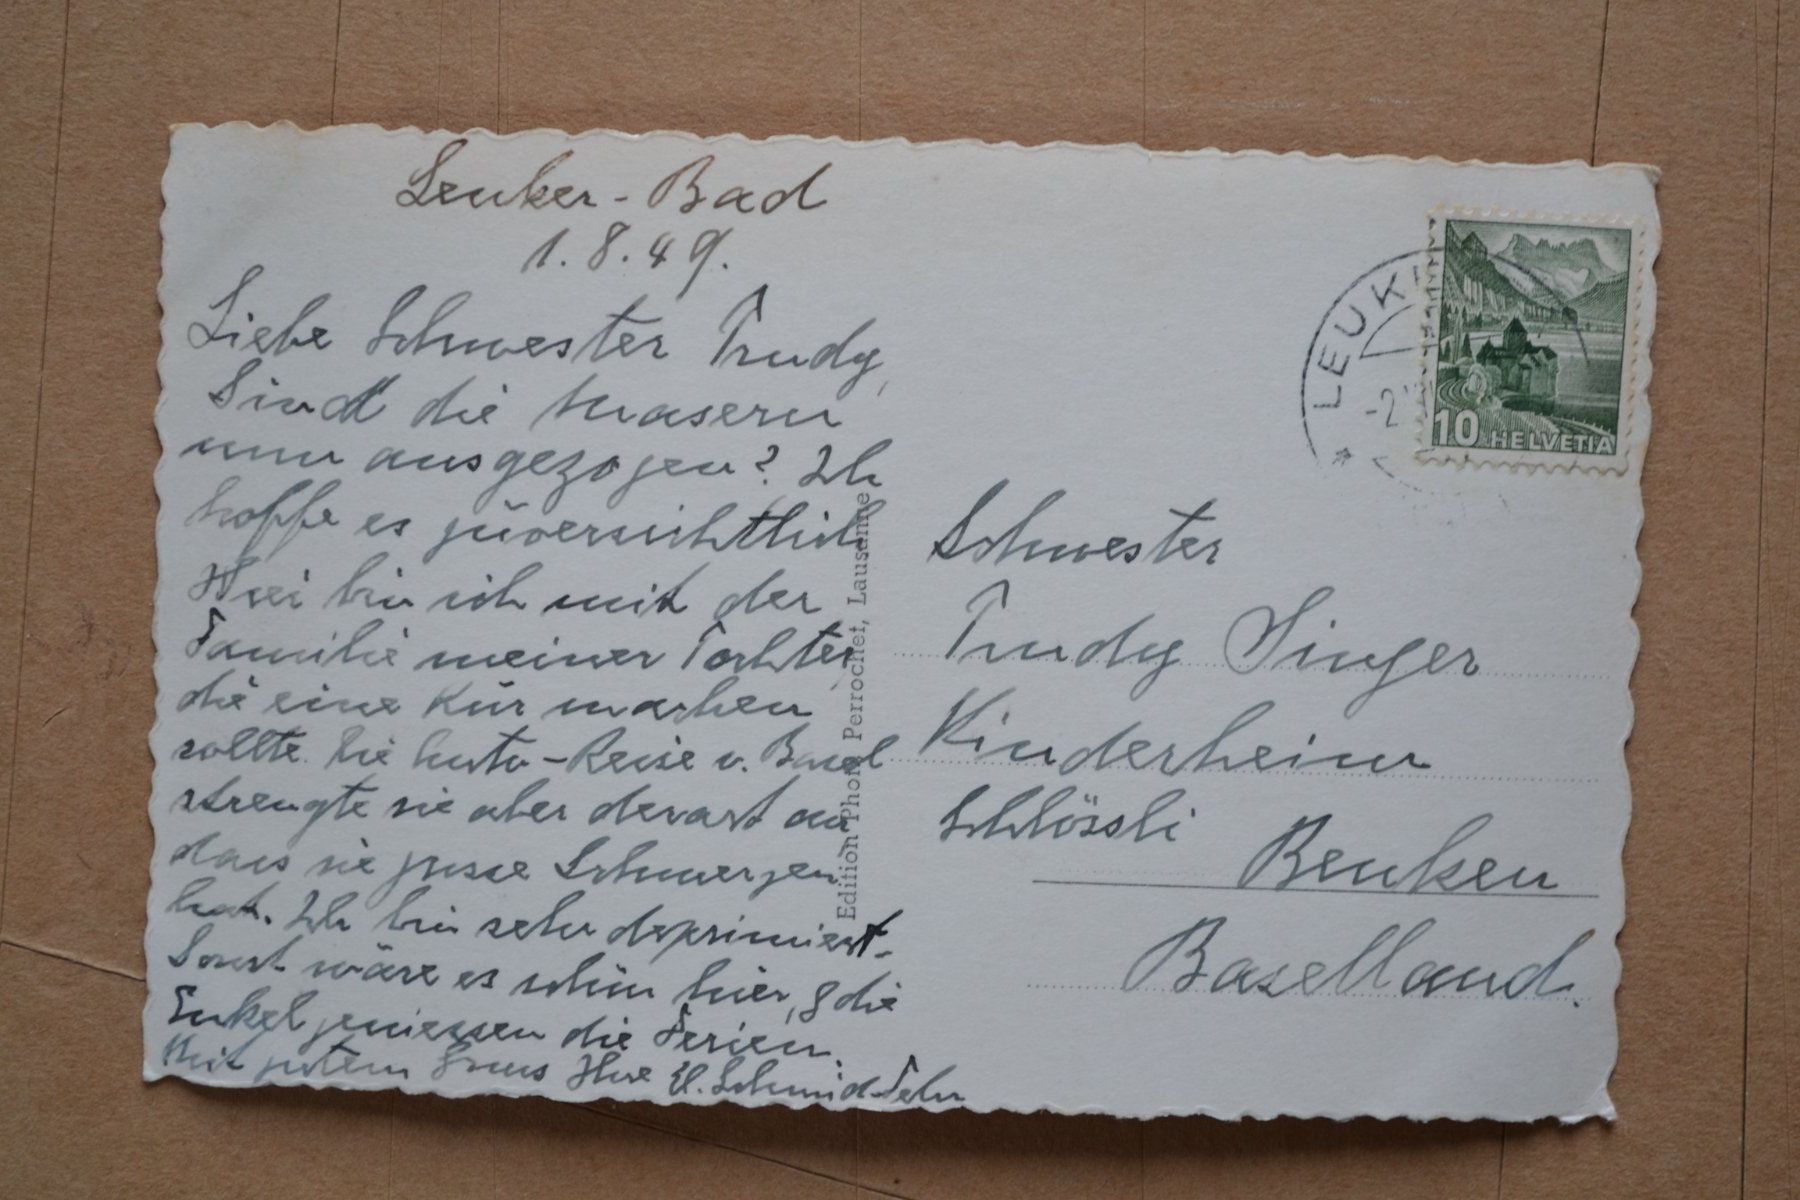 Leuker-Bad
1.8.49.
Liebe Schwester Trudy,
Sind die Masern
nun ausgezogen? Ich
hoffe es zuversichtlich
Hier bin ich mit der
Familie meiner Tochter
die eine Kur machen
sollte. Die Auto-Reise v. Basel
strengte sie aber derart an
dass sie grosse Schmerzen
hat. Ich bin sehr deprimiert.
Sonst wäre es schön hier, & die
Enkel geniessen die Ferien.
Mit gutem Gruss Ihre E. Schmid-Fehr
Edition Phot. Perrochet, Lausanne
LEUK
-2
10 HELVETIA
Schwester
Trudy Singer
Kinderheim
Schlössli
Benken
Baselland.